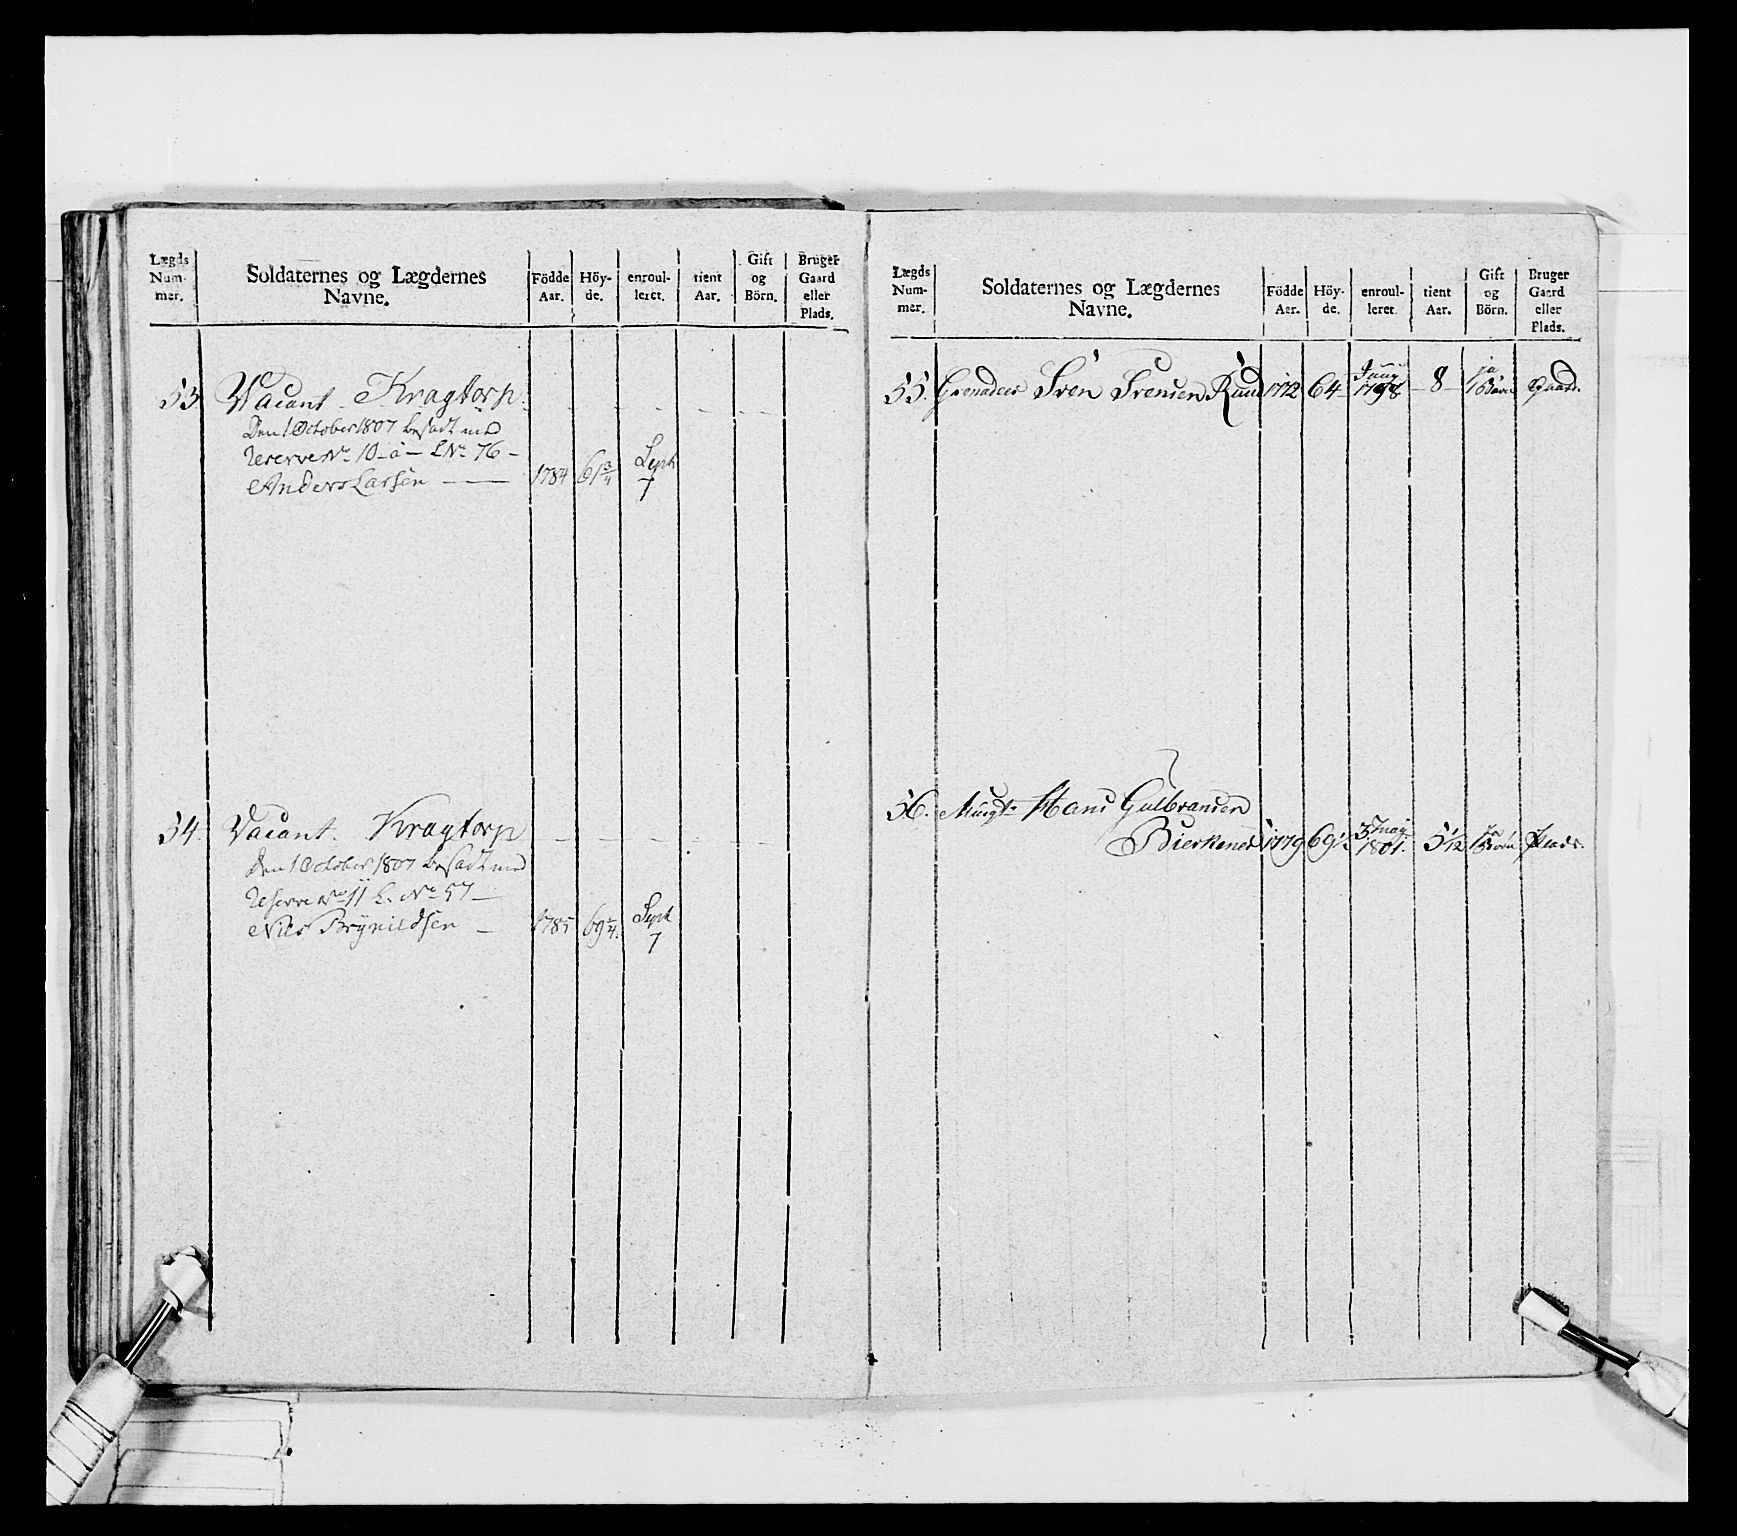 Lægds Num-mer. Soldaternes og Lægdernes Navne. Födde Aar. Höy-de. enroul-leret. tient Aar. Gift og Börn. Bruger Gaard eller Plads.
53 Vacant Kragtorp
Den 1 October 1807 besadt med
Reserve No 10 - a - L No 76 -
Anders Larsen 1784 61 3/4 Sept 7
54. Vacant. Kragtorp
Den 1 October 1807 besadt med
Reserve No 11 L. No 57 -
Nils Brynildsen 1785 Sept 7
Lægds Num-mer. Soldaternes og Lægdernes Navne. Födde Aar. Höy-de. enroul-leret. tient Aar. Gift og Börn. Bruger Gaard eller Plads.
55. Grenadeer Sven Svensen Ruud 1772 64 1798 8 ja 1 Barn Gaard.
56. Musqt. Hans Gulbransen
Bierkenes 1779 may 1801. 5 1/12 ja 1 Barn Plads.